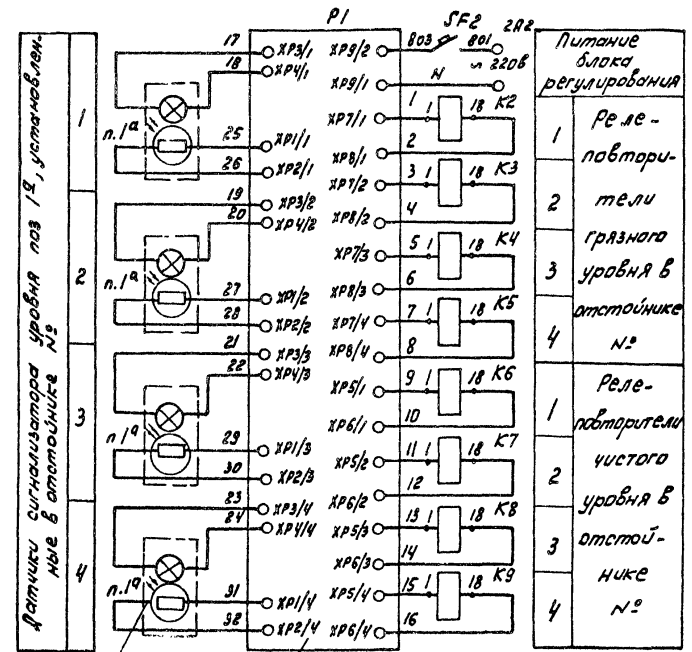 Датчики сигнализатора уровня поз 1а, установлен-
ные в отстойнике №
1
2
3
4
п.1а
п.1а
п.1а
п.1а
17
18
25
26
19
20
27
28
21
22
29
30
23
24
31
32
Р1
ХР3/1
ХР4/1
ХР1/1
ХР2/1
ХР3/2
ХР4/2
ХР1/2
ХР2/2
ХР3/3
ХР4/3
ХР1/3
ХР2/3
ХР3/4
ХР4/4
ХР1/4
ХР2/4
ХР9/2
ХР9/1
ХР7/1
ХР8/1
ХР7/2
ХР8/2
ХР7/3
ХР8/3
ХР7/4
ХР8/4
ХР5/1
ХР6/1
ХР5/2
ХР6/2
ХР5/3
ХР6/3
ХР5/4
ХР6/4
SF2
803 801 2А2
~ 220В
N
1 1 18 К2
2
3 1 18 К3
4
5 1 18 К4
6
7 1 18 К5
8
9 1 18 К6
10
11 1 18 К7
12
13 1 18 К8
14
15 1 18 К9
16
Питание
блока
регулирования
1
2
3
4
Реле-
повтори-
тели
грязного
уровня в
отстойнике
№
1
2
3
4
Реле-
повторители
чистого
уровня в
отстой-
нике
№